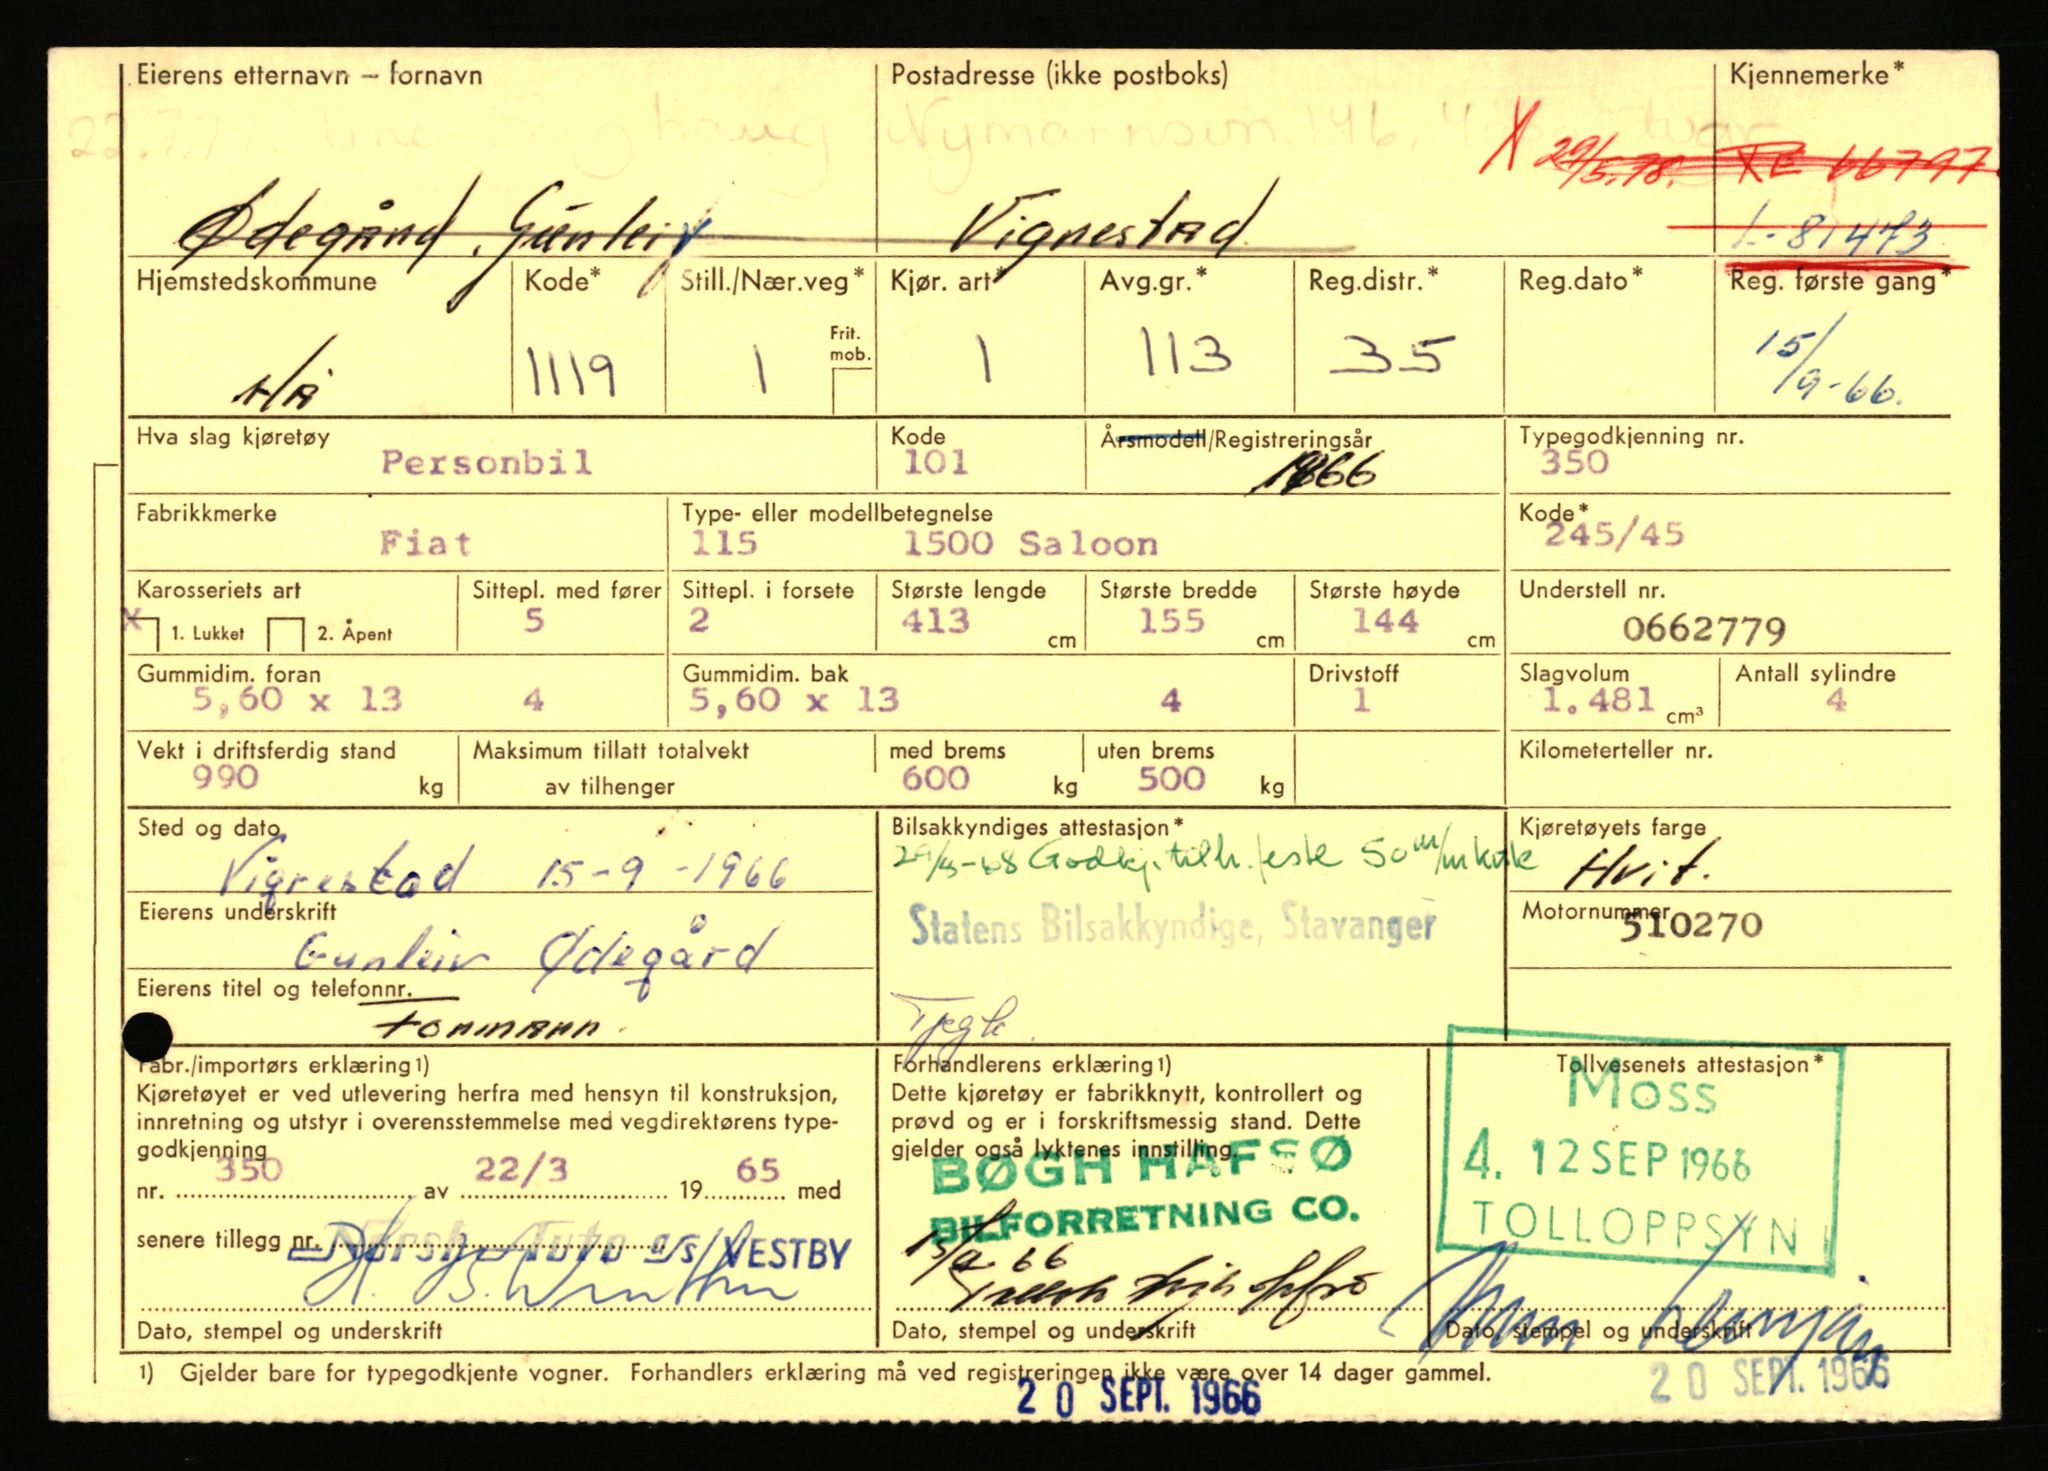 Eierens etternavn – fornavn
Postadresse (ikke postboks)
Kjennemerke*
22.7.7
Nymannsvn. 146, 4
X 29/5.78. RE 66797
Ødegård, Gunleiv
Vigrestad
L-81473
Hjemstedskommune
Kode*
Still./Nær.veg*
Kjør. art*
Avg.gr.*
Reg.distr.*
Reg.dato*
Reg. første gang*
Hå
1119
1
Frit. mob.
1
113
35
15/9-66.
Hva slag kjøretøy
Kode
Årsmodell/Registreringsår
Typegodkjenning nr.
Personbil
101
1966
350
Fabrikkmerke
Type- eller modellbetegnelse
Kode*
Fiat
115 1500 Saloon
245/45
Karosseriets art
Sittepl. med fører
Sittepl. i forsete
Største lengde
Største bredde
Største høyde
Understell nr.
x 1. Lukket 2. Åpent
5
2
413 cm
155 cm
144 cm
0662779
Gummidim. foran
Gummidim. bak
Drivstoff
Slagvolum
Antall sylindre
5,60 x 13 4
5,60 x 13 4
1
1.481 cm³
4
Vekt i driftsferdig stand
Maksimum tillatt totalvekt
med brems
uten brems
Kilometerteller nr.
990 kg
av tilhenger
600 kg
500 kg
Sted og dato
Bilsakkyndiges attestasjon*
Kjøretøyets farge
Vigrestad 15-9-1966
29/5-68 Godkj. tilh./este 50 m/m kule
Hvit.
Eierens underskrift
Statens Bilsakkyndige, Stavanger
Motornummer
510270
Gunleiv Ødegård
Eierens titel og telefonnr.
Formann.
Fabr./importørs erklæring1)
Kjøretøyet er ved utlevering herfra med hensyn til konstruksjon,
innretning og utstyr i overensstemmelse med vegdirektørens type-
godkjenning
nr. 350 av 22/3 19 65 med
senere tillegg nr.
Norsk Auto a/s VESTBY
Dato, stempel og underskrift
Forhandlerens erklæring1)
Dette kjøretøy er fabrikknytt, kontrollert og
prøvd og er i forskriftsmessig stand. Dette
gjelder også lyktenes innstilling.
BØGH HAFSØ
BILFORRETNING CO.
15/9-66
Dato, stempel og underskrift
Tollvesenets attestasjon*
MOSS
4. 12 SEP 1966
TOLLOPPSYN
Dato, stempel og underskrift
1) Gjelder bare for typegodkjente vogner. Forhandlers erklæring må ved registreringen ikke være over 14 dager gammel.
20 SEPT. 1966
20 SEPT. 1966